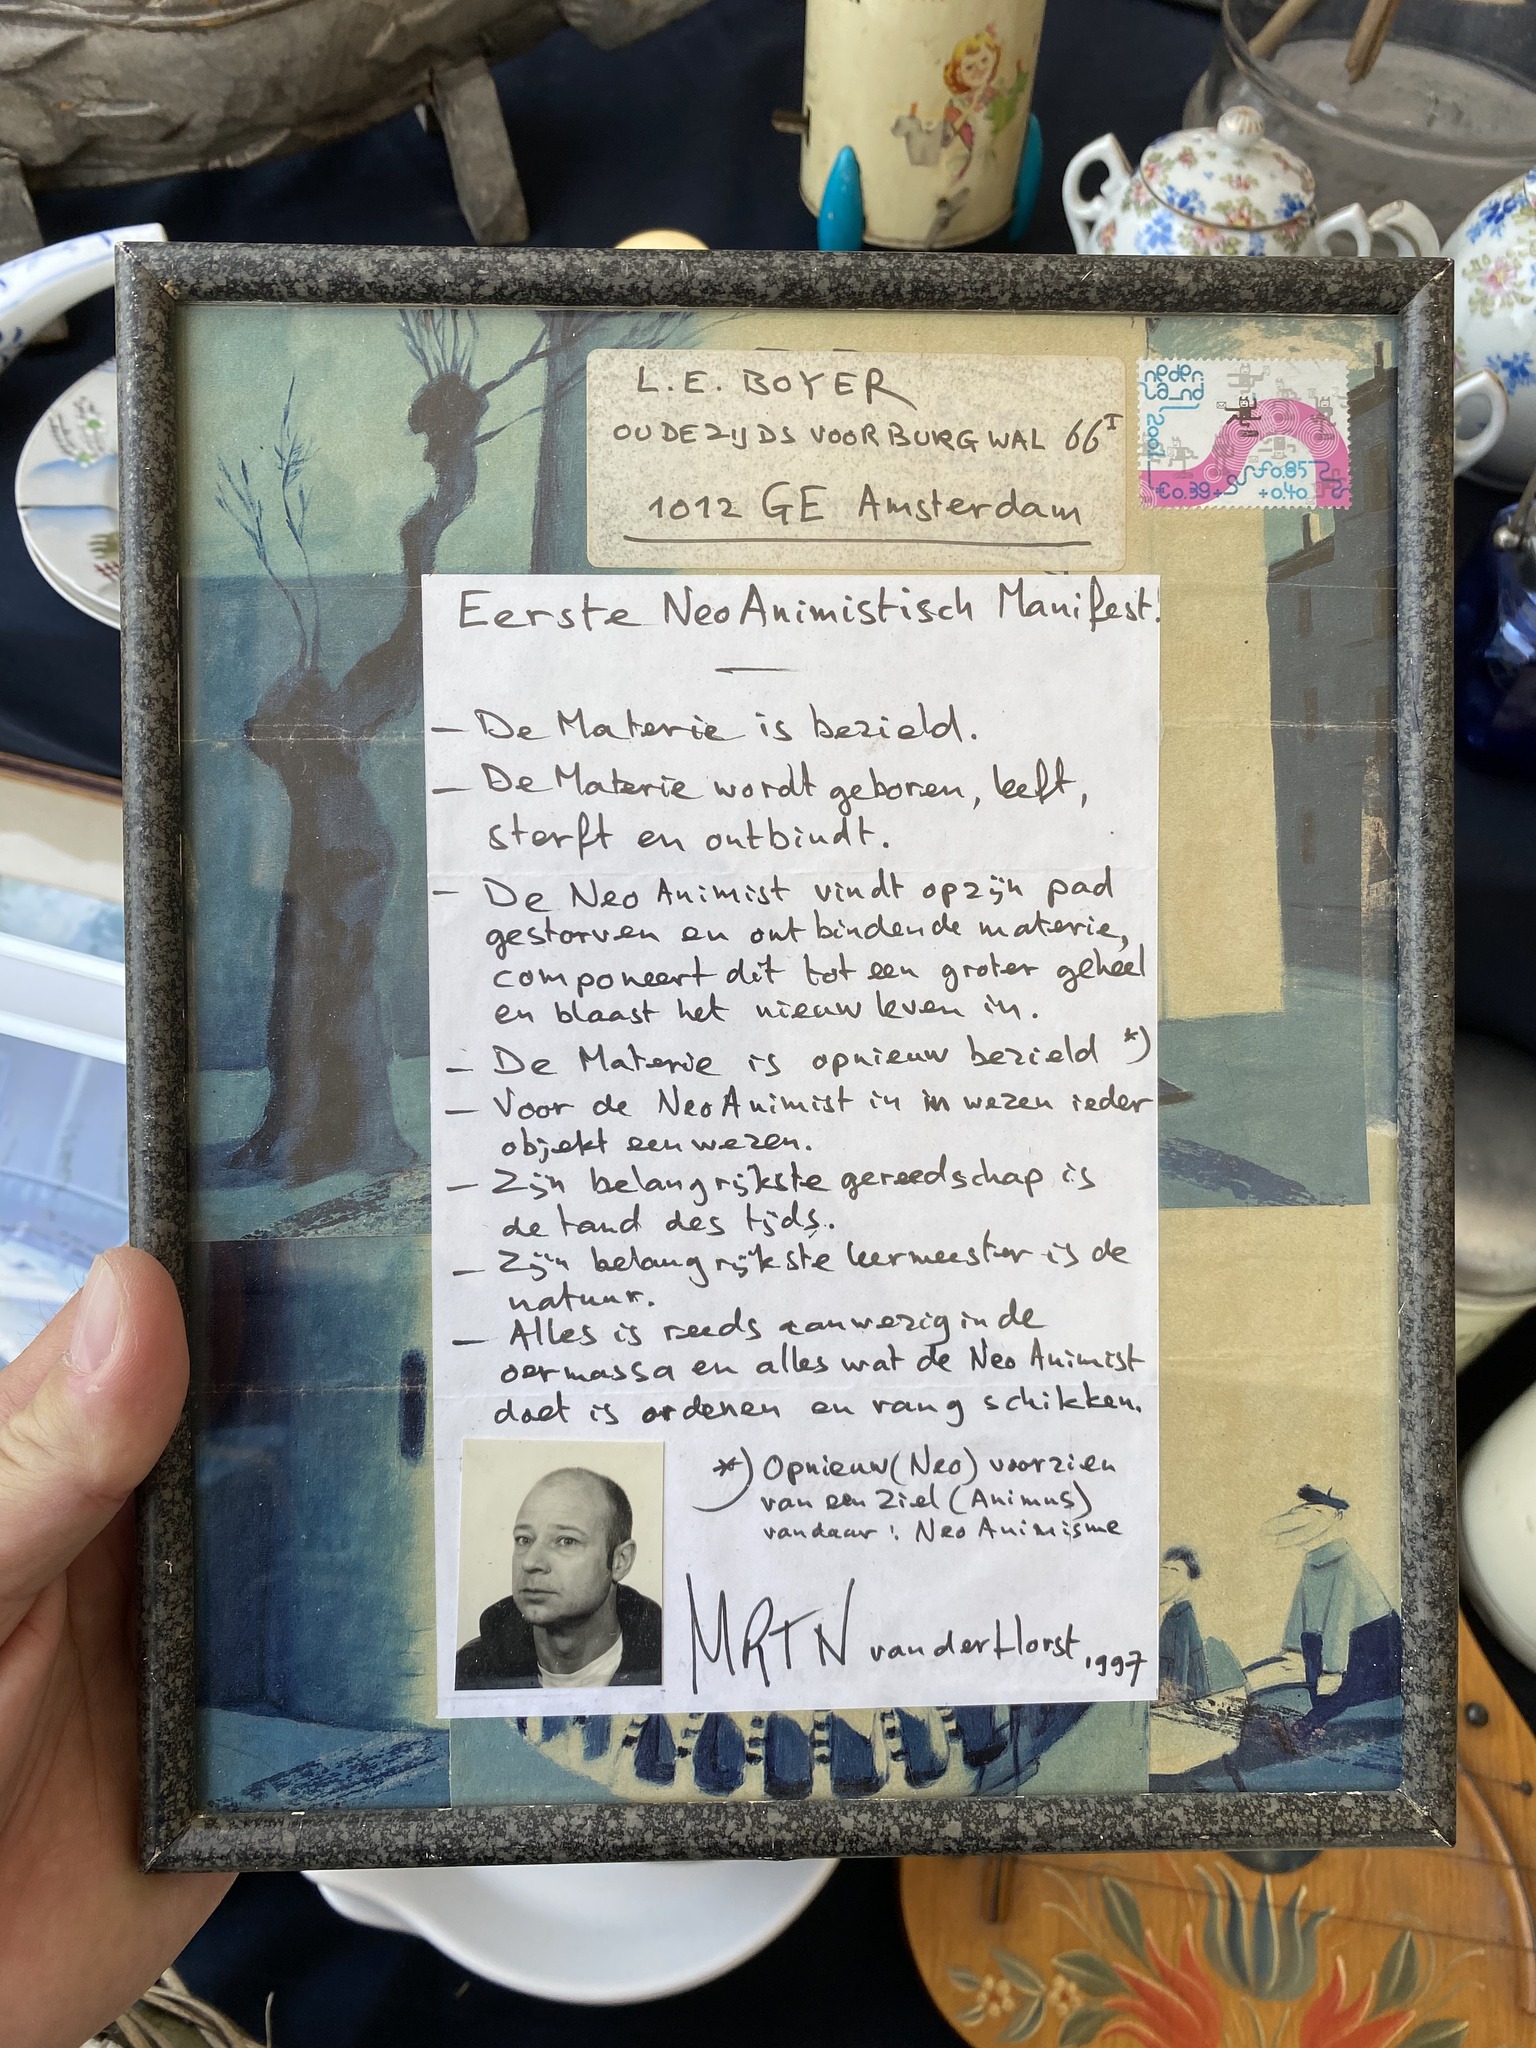 L.E. BOYER
OUDEZIJDS VOORBURGWAL 66 I
1012 GE Amsterdam
nederland
2001
€0.39+
f0.85
+0.40
Eerste NeoAnimistisch Manifest!
– De Materie is bezield.
– De Materie wordt geboren, leeft,
sterft en ontbindt.
– De Neo Animist vindt op zijn pad
gestorven en ontbindende materie,
componeert dit tot een groter geheel
en blaast het nieuw leven in.
– De Materie is opnieuw bezield *)
– Voor de NeoAnimist in in wezen ieder
objekt een wezen.
– Zijn belangrijkste gereedschap is
de tand des tijds.
– Zijn belangrijkste leermeester is de
natuur.
– Alles is reeds aanwezig in de
oermassa en alles wat de Neo Animist
doet is ordenen en rangschikken.
*) Opnieuw (Neo) voorzien
van een Ziel (Animus)
vandaar: Neo Animisme
MRTN van der Horst, 1997